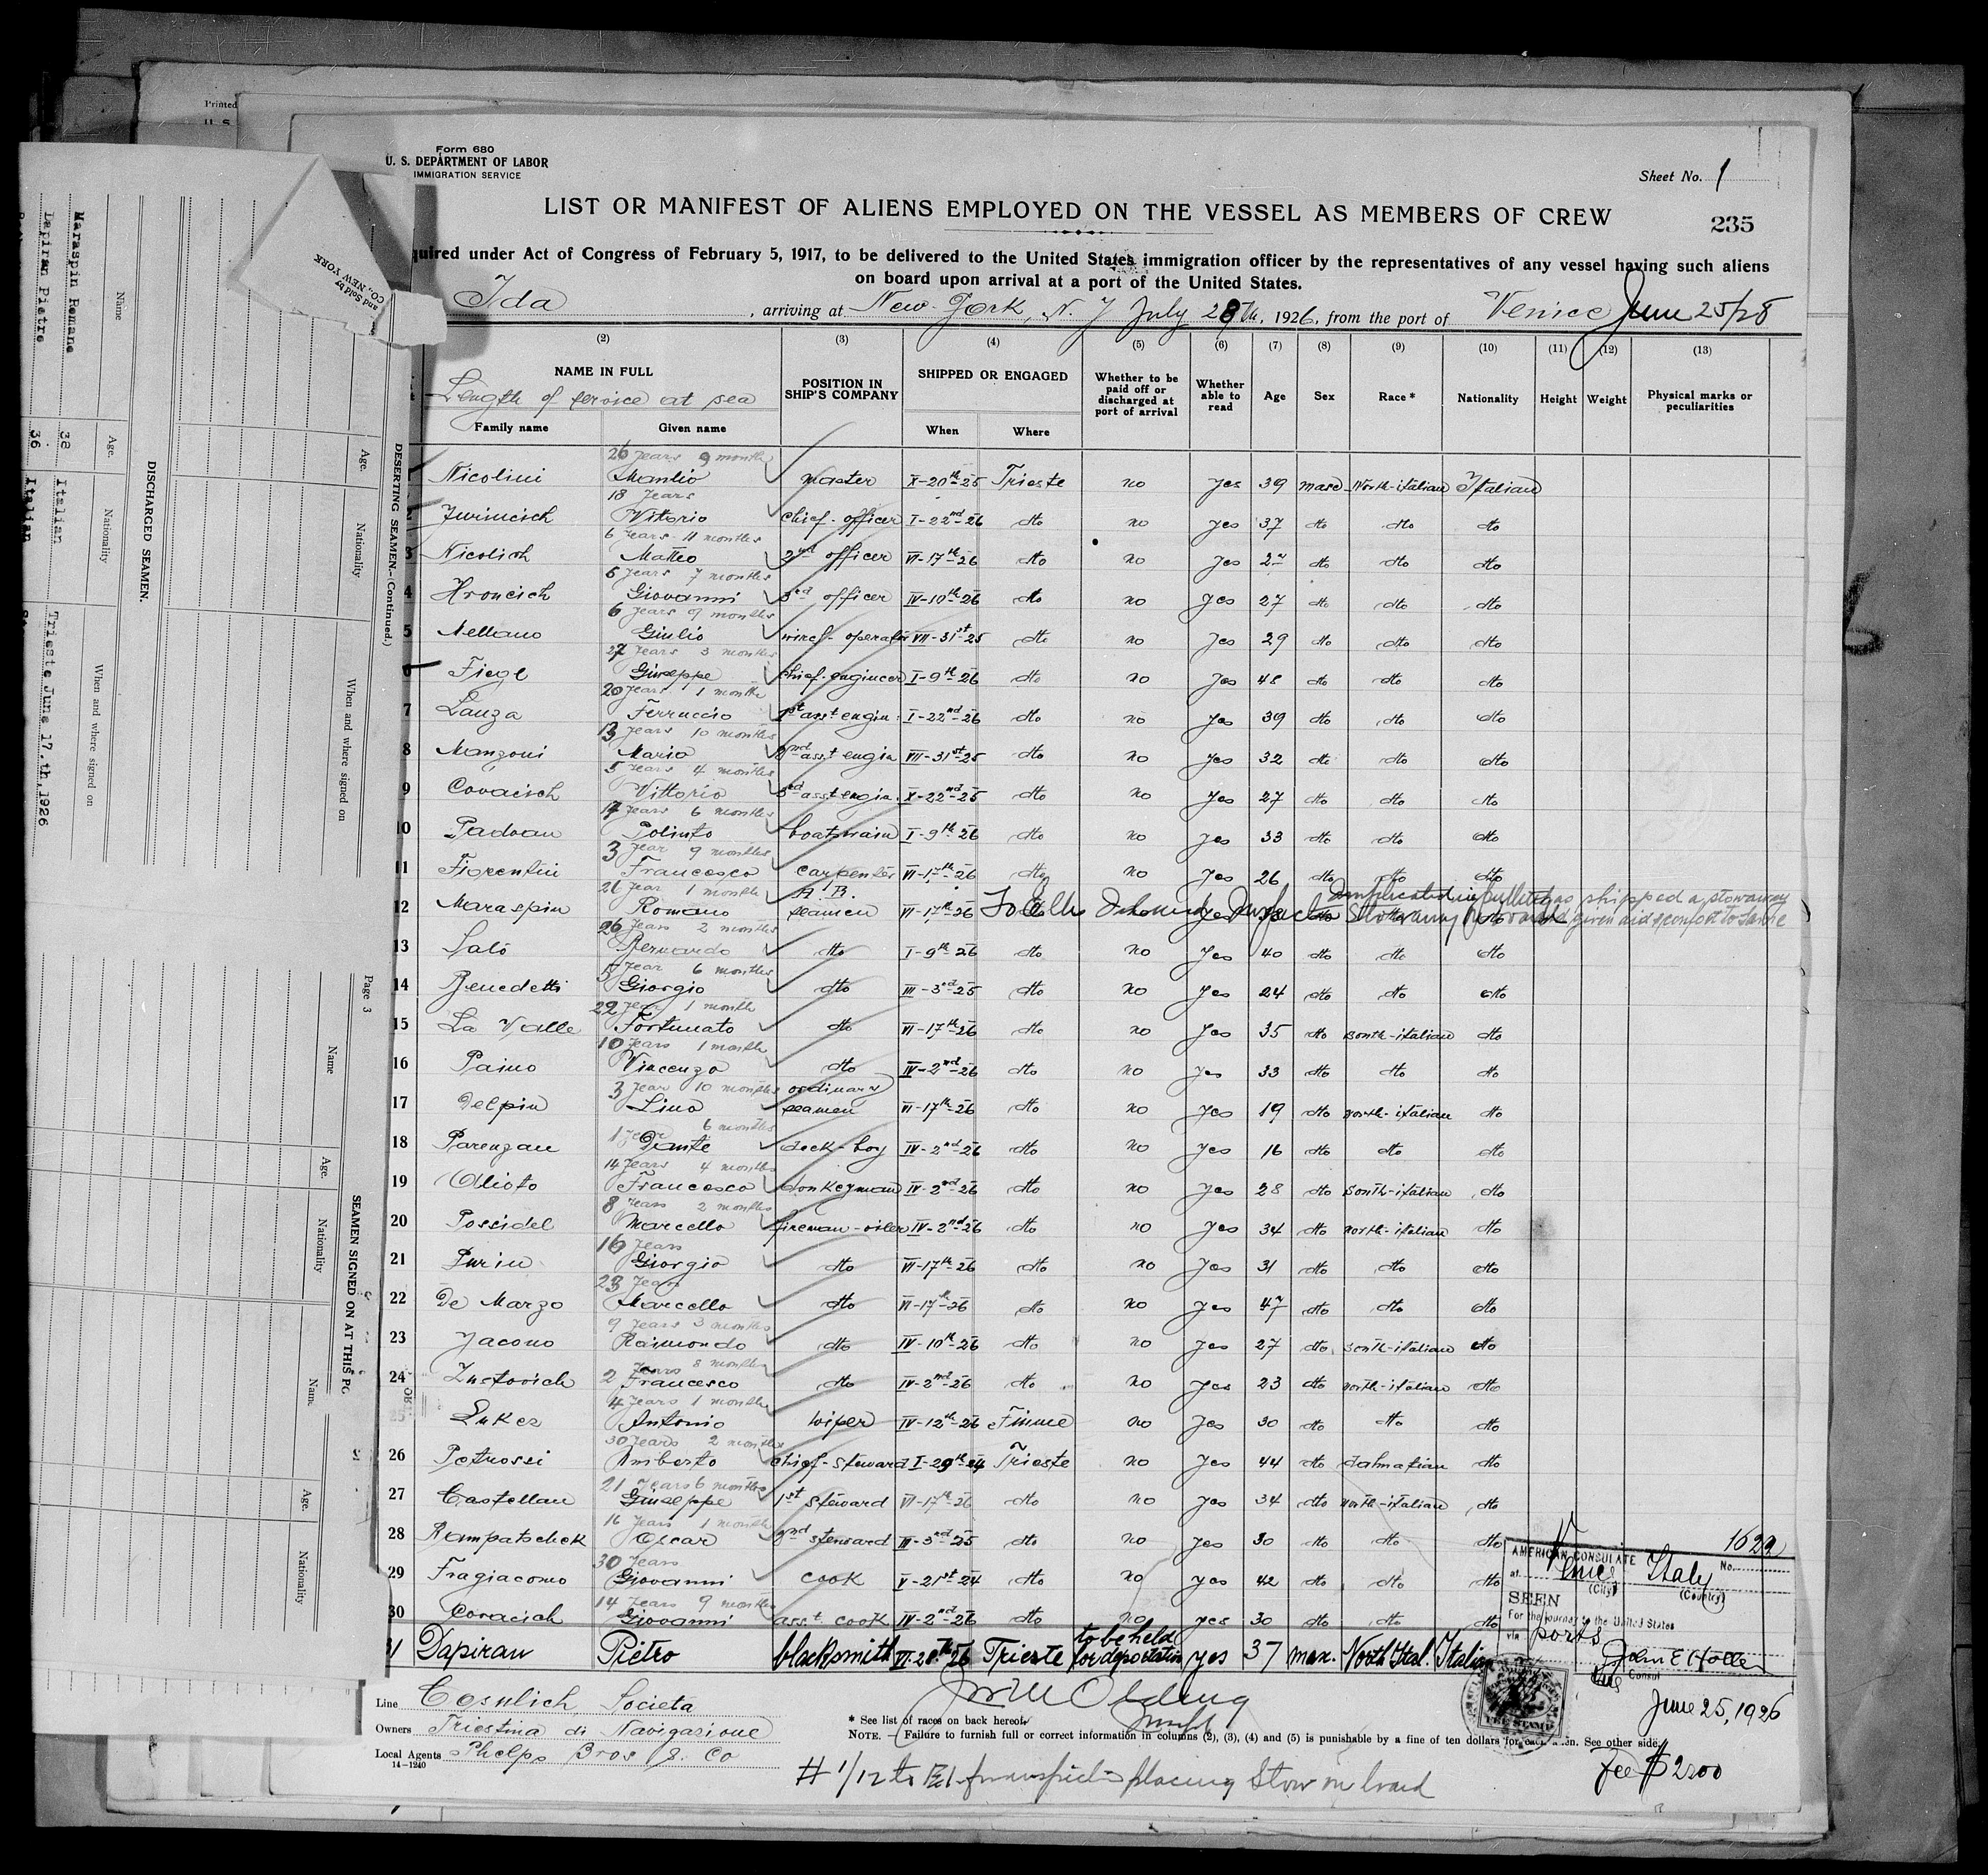 Printed
U. S.
Form 680
U. S. DEPARTMENT OF LABOR
IMMIGRATION SERVICE
Sheet No. 1
LIST OR MANIFEST OF ALIENS EMPLOYED ON THE VESSEL AS MEMBERS OF CREW
235
quired under Act of Congress of February 5, 1917, to be delivered to the United States immigration officer by the representatives of any vessel having such aliens
on board upon arrival at a port of the United States.
Ida, arriving at New-York, N. Y July 28th, 1926, from the port of Venice June 25/28
(2) (3) (4) (5) (6) (7) (8) (9) (10) (11) (12) (13)
NAME IN FULL POSITION IN SHIP'S COMPANY SHIPPED OR ENGAGED Whether to be paid off or discharged at port of arrival Whether able to read Age Sex Race * Nationality Height Weight Physical marks or peculiarities
Length of service at sea
Family name Given name When Where
26 years 9 months
Nicolini Manlio master X-20th-25 Trieste no yes 39 masc. North-italian Italian
18 years
Vittorio chief-officer I-22nd-26 dto no yes 37 dto dto dto
6 years 11 months
3 Nicolich Matteo 2nd officer VI-17th-26 dto no yes dto dto dto
5 years 7 months
4 Hroncich Giovanni 3rd officer IV-10th-26 dto no yes 27 dto dto dto
6 years 9 months
5 Giulio wirel-operator VII-31st-25 dto no yes 29 dto dto dto
27 years 3 months
6 Fiegl Giuseppe chief-engineer I-9th-26 dto no yes 48 dto dto dto
20 years 1 month
7 Lanza Ferruccio 1st asst engin. I-22nd-26 dto no yes 39 dto dto dto
13 years 10 months
8 Manzoni Mario 2nd asst engin VII-31st-25 dto no yes 32 dto dto dto
5 years 4 months
9 Covacich Vittorio 3rd asst engin. X-22nd-25 dto no yes 27 dto dto dto
17 years 6 months
10 Padoan Polinto boatswain I-9th-26 dto no yes 33 dto dto dto
3 year 9 months
11 Fiorentini Francesco carpenter VI-17th-26 dto no yes 26 dto dto dto
21 year 1 month A. B.
12 Maraspin Romano seamen VI-17th-26 To Ellis yes 38 dto Stowaway
shipped a stowaway
given aid & comfort to same
26 years 2 months
13 Salò Bernardo dto I-9th-26 dto no yes 40 dto dto dto
5 year 6 months
14 Benedetti Giorgio dto III-3rd-25 dto no yes 24 dto dto dto
22 year 1 month
15 La Valle Fortunato dto VI-17th-26 dto no yes 35 dto South-italian dto
10 years 1 month
16 Paino Vincenzo dto IV-2nd-26 dto no yes 33 dto dto dto
3 year 10 months ordinary
17 Delpin Lino seamen VI-17th-26 dto no yes 19 dto North-italian dto
1 year 6 months
18 Parenzan Dante deck-boy IV-2nd-26 dto no yes 16 dto dto dto
14 years 4 months
19 Alioto Francesco donkeyman IV-2nd-26 dto no yes 28 dto South-italian dto
8 years 2 months
20 Possidel Marcello fireman-oiler IV-2nd-26 dto no yes 34 dto North-italian dto
16 years
21 Purin Giorgio dto VI-17th-26 dto no yes 31 dto dto dto
23 years
22 De Marzo Marcello dto VI-17th-26 dto no yes 47 dto dto dto
9 years 3 months
23 Jacono Raimondo dto IV-10th-26 dto no yes 27 dto South-italian dto
2 years 8 months
24 Francesco dto IV-2nd-26 dto no yes 23 dto North-italian dto
4 years 1 month
25 Antonio wiper IV-12th-26 Fiume no yes 30 dto dto dto
30 years 2 months
26 Petrossi Umberto chief-steward I-29th-24 Trieste no yes 44 dto dalmatian dto
21 years 6 months
27 Castellan Giuseppe 1st steward VI-17th-26 dto no yes 34 dto North-italian dto
16 years 1 month
28 Rampatschek Oscar 2nd steward III-3rd-25 dto no yes 30 dto dto dto
30 years
29 Fragiacomo Giovanni cook V-21st-24 dto no yes 42 dto dto dto
14 years 9 months
30 Covacich Giovanni asst. cook IV-2nd-26 dto no yes 30 dto dto dto
31 Dapiran Pietro blacksmith Trieste to be held for deportation yes 37 mas. North Ital. Italian
Line Cosulich Societa
Owners Triestina di Navigazione
Local Agents Phelps Bros & Co
14—1240
* See list of races on back hereof.
NOTE.—Failure to furnish full or correct information in columns (2), (3), (4) and (5) is punishable by a fine of ten dollars for each alien. See other side.
# 1/12 to placing Stow on board
1622
AMERICAN CONSULATE No.
at Venice (City) Italy (Country)
SEEN
For the journey to the United States
via ports
Consul
June 25, 1926
Fee $2.00
FEE STAMP
and Sold by
CO., NEW YORK
DESERTING SEAMEN.—(Continued.)
Name Age. Nationality When and where signed on
DISCHARGED SEAMEN.
Name Age. Nationality When and where signed on
Maraspin Romano 38 Italian Trieste June 17.th,1926
Dapiran Pietro 36 Italian
Page 3
SEAMEN SIGNED ON AT THIS PO
Name Age. Nationality
Name Age. Nationality